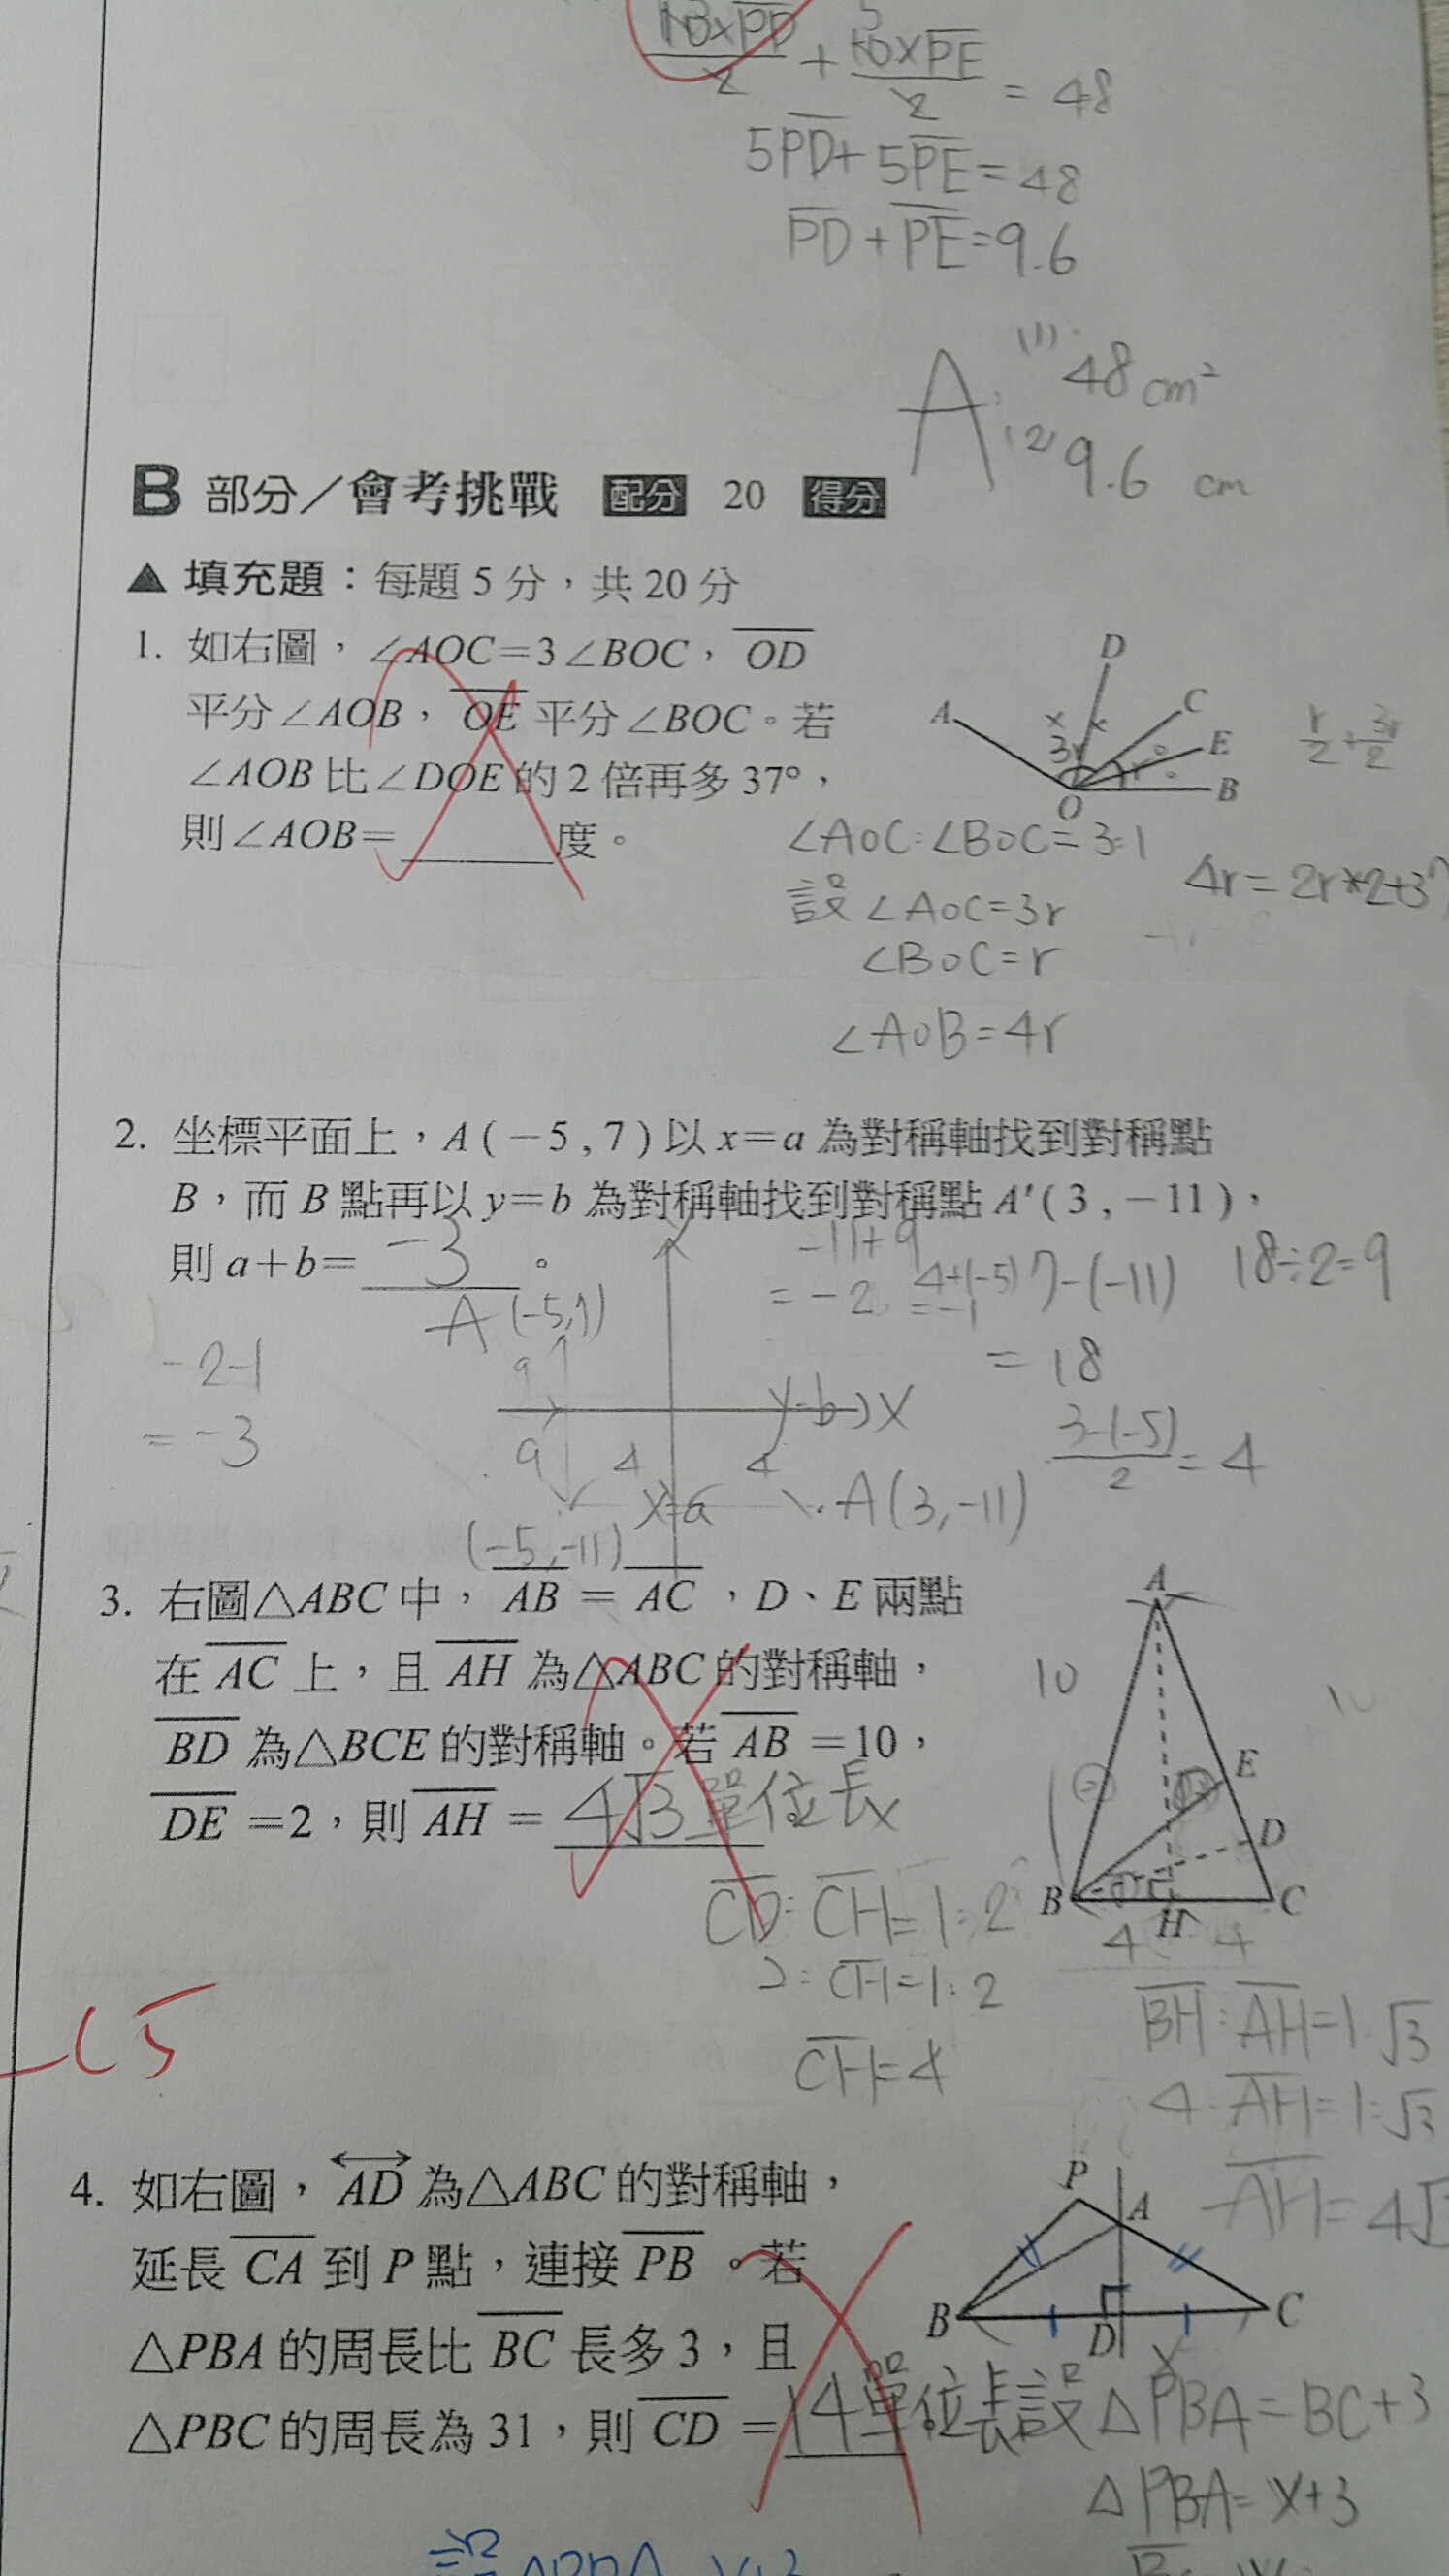 10×PD/2 + 10×PE/2 = 48
5PD+5PE=48
PD+PE=9.6
A: (1) 48 cm²
(2) 9.6 cm
B 部分/會考挑戰 配分 20 得分
▲ 填充題:每題5分,共20分
1. 如右圖,∠AOC=3∠BOC,OD
平分∠AOB,OE平分∠BOC。若
∠AOB比∠DOE的2倍再多37°,
則∠AOB=______度。
D
A
C
E
B
O
x
x
3r
r/2+3r/2
∠AOC:∠BOC=3:1
4r=2r×2+37
設∠AOC=3r
∠BOC=r
∠AOB=4r
2. 坐標平面上,A(-5,7)以x=a為對稱軸找到對稱點
B,而B點再以y=b為對稱軸找到對稱點A'(3,-11),
則a+b=-3。
-11+9
=-2
4+(-5)
=-1
7-(-11)
=18
18÷2=9
-2-1
=-3
A(-5,7)
9
9
y=b
x
4
4
x=a
A(3,-11)
(-5,-11)
3-(-5)/2=4
3. 右圖△ABC中,AB=AC,D、E兩點
在AC上,且AH為△ABC的對稱軸,
BD為△BCE的對稱軸。若AB=10,
DE=2,則AH=4√3單位長
A
10
10
E
D
B
H
C
4
4
CD:CH=1:2
2:CH=1:2
CH=4
BH:AH=1:√3
4:AH=1:√3
AH=4√3
-15
4. 如右圖,AD為△ABC的對稱軸,
延長CA到P點,連接PB。若
△PBA的周長比BC長多3,且
△PBC的周長為31,則CD=14單位長
P
A
B
D
C
x
設△PBA=BC+3
△PBA=x+3